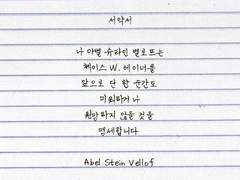 서약서
나 아벨 슈타인 벨로프는
체이스 W. 테이너를
앞으로 단 한 순간도
미워하거나
원망하지 않을 것을
맹세합니다
Abel Stein Vellof